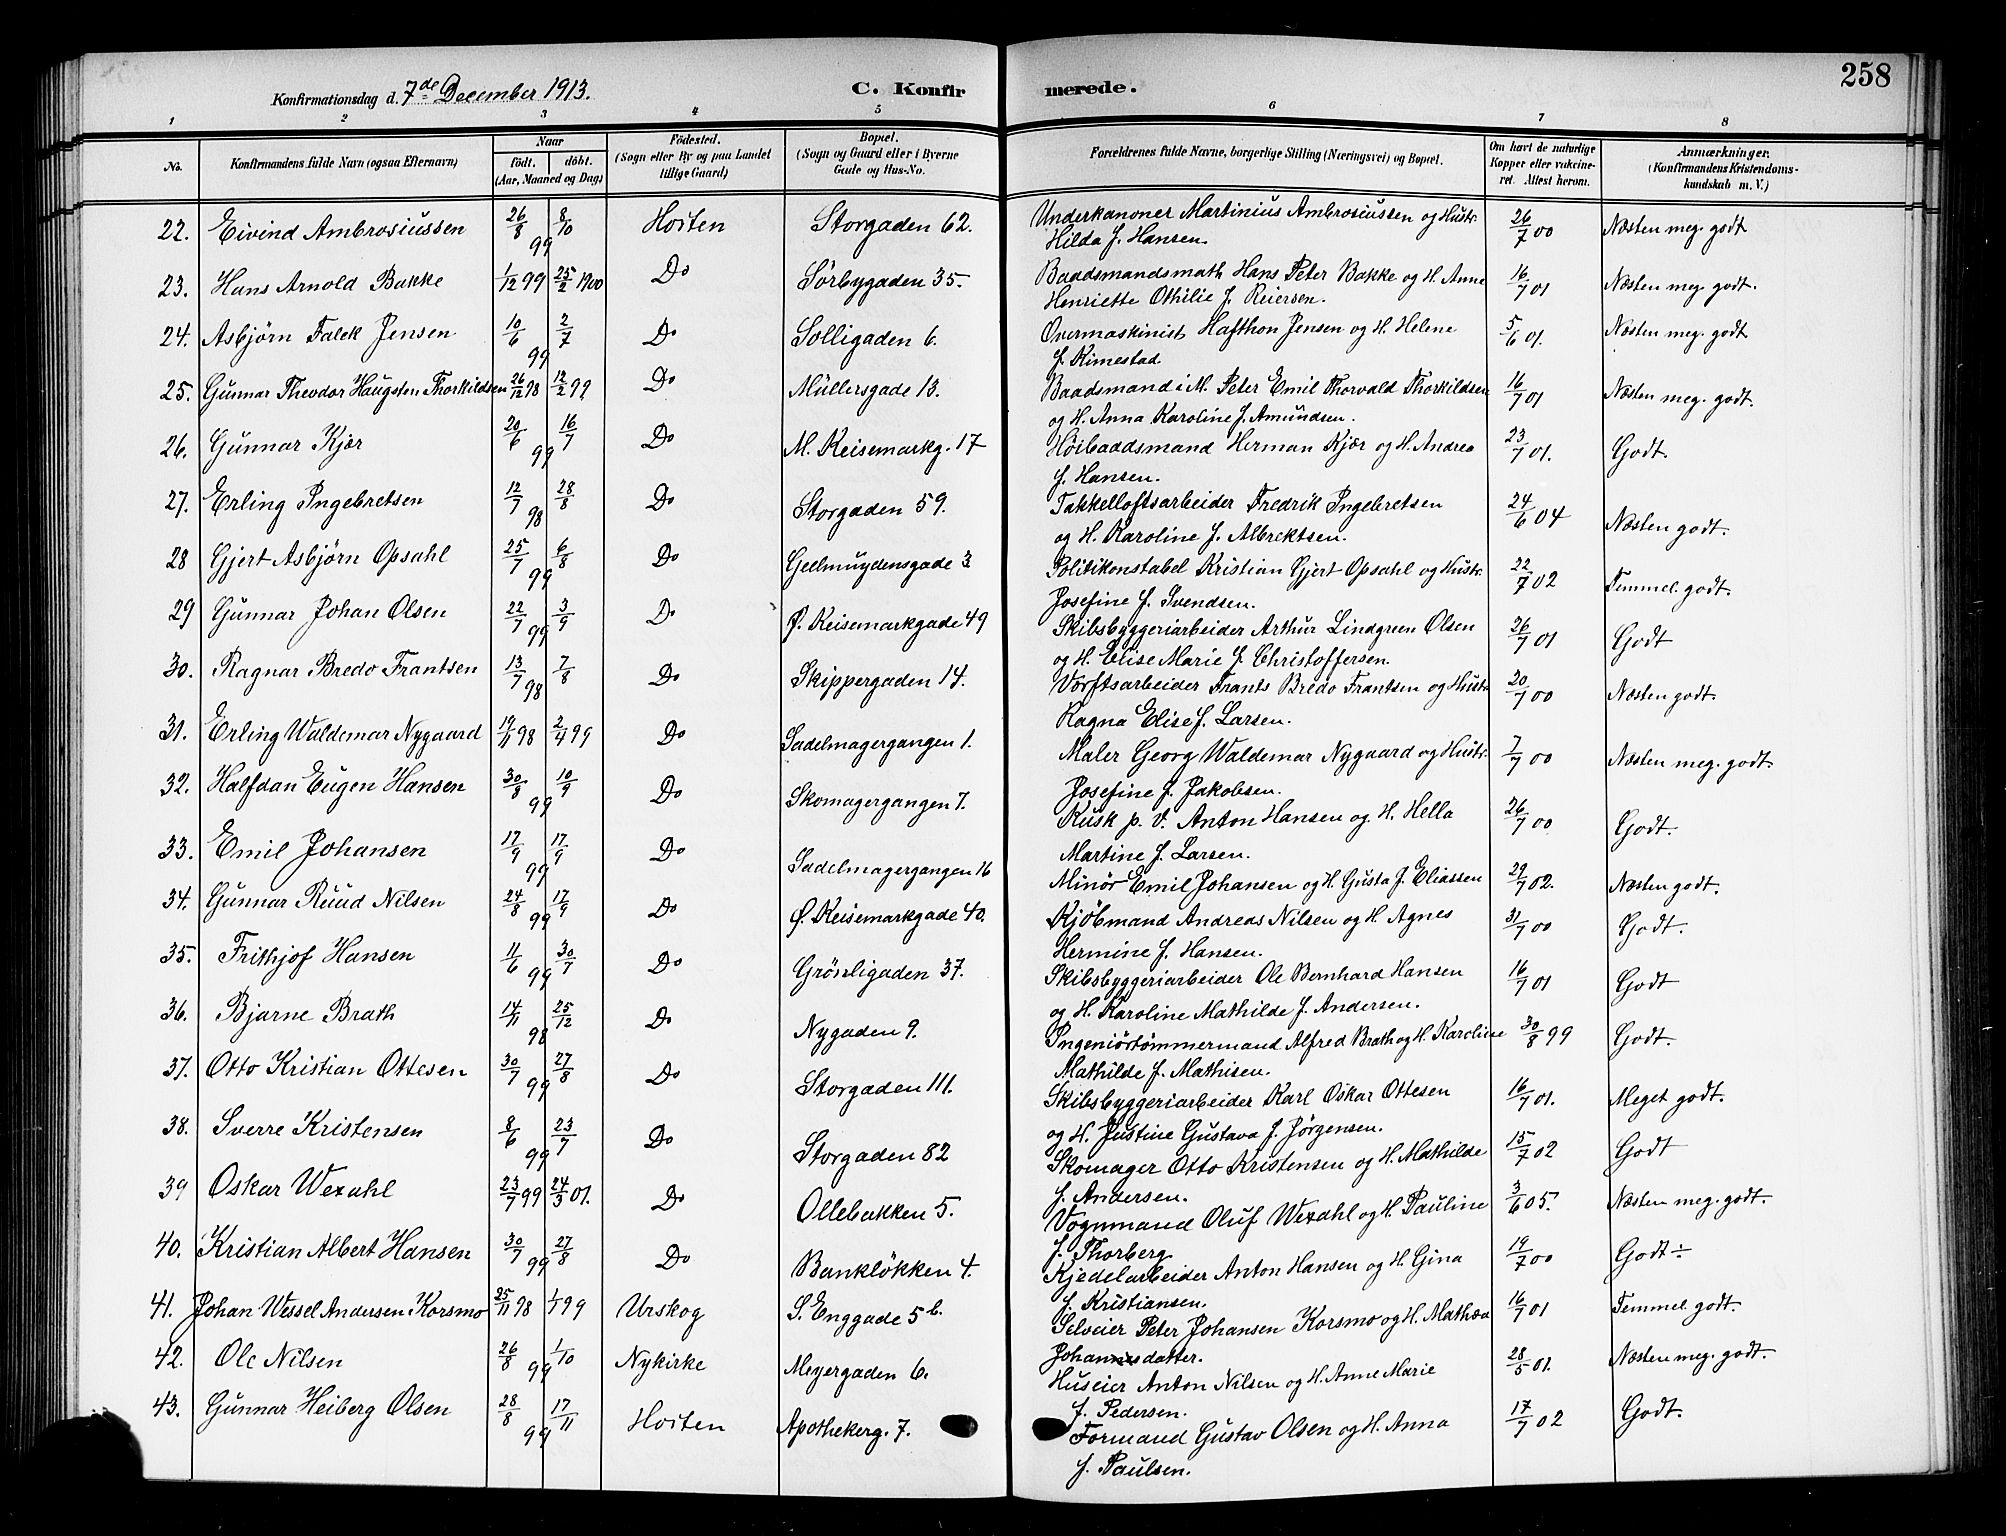 258
Konfirmationsdag d. 7de December 1913.
C. Konfirmerede.
1 2 3 4 5 6 7 8
No. Konfirmandens fulde Navn (ogsaa Efternavn) Naar født. døbt. (Aar, Maaned og Dag) Fødested. (Sogn eller By og paa Landet tillige Gaard) Bopæl. (Sogn og Gaard eller i Byerne Gade og Hus-No. Forældrenes fulde Navne, borgerlige Stilling (Næringsvei) og Bopæl. Om havt de naturlige Kopper eller vakcineret. Attest herom. Anmærkninger. (Konfirmandens Kristendomskundskab m. V.)
22. Eivind Ambrosiussen 26/8 99 8/10 Horten Storgaden 62. Underkanoner Martinius Ambrosiussen og Hustr. 26/7 00 Næsten meg. godt
Hilda f. Hansen.
23. Hans Arnold Bakke 1/12 99 25/2 1900 Do Sörbygaden 35. Baadsmandsmath Hans Peter Bakke og H. Anne 16/7 01 Næsten meg. godt.
Henriette Othilie f. Reiersen.
24. Asbjörn Falck Jensen 10/6 99 2/7 Do Solligaden 6. Overmaskinist Hafthon Jensen og H. Helene 5/6 01. Næsten meg. godt
f. Rimestad.
25. Gunnar Theodor Haugsten Thorkildsen 26/12 98 12/2 99 Do Müllersgade 13. Baadsmand i M. Peter Emil Thorvald Thorkildsen 16/7 01 Næsten meg. godt.
og H. Anna Karoline f. Amundsen.
26. Gunnar Kjær 20/6 99 16/7 Do M. Keisemarkg. 17 Höibaadsmand Herman Kjær og H. Andrea 23/7 01. Godt.
f. Hansen.
27. Erling Ingebretsen 12/7 98 28/8 Do Storgaden 59. Takkelloftsarbeider Fredrik Ingebretsen 24/6 04 Næsten godt.
og H. Karoline f. Albrektsen.
28 Gjert Asbjörn Opsahl 25/7 99 6/8 Do Geelmuydensgade 3 Politikonstabel Kristian Gjert Opsahl og Hustr. 22/7 02 Temmel. godt.
Josefine f. Svendsen.
29 Gunnar Johan Olsen 22/7 99 3/9 Do Ø. Keisemarkgade 49 Skibsbyggeriarbeider Arthur Lindgreen Olsen 26/7 01 Godt
og H. Elise Marie f. Christoffersen.
30. Ragnar Bredo Frantsen 13/7 98 7/8 Do Skippergaden 14. Værftsarbeider Frants Bredo Frantsen og Hustr. 20/7 00 Næsten godt.
Ragna Elise f. Larsen.
31. Erling Waldemar Nygaard 19/11 98 2/4 99 Do Sadelmagergangen 1. Maler Georg Waldemar Nygaard og Hustr. 7/7 00 Næsten meg. godt.
Josefine f. Jakobsen.
32. Halfdan Eugen Hansen 30/8 99 10/9 Do Skomagergangen 7. Kusk p. V. Anton Hansen og H. Hella 26/7 00 Godt.
Martine f. Larsen.
33. Emil Johansen 17/9 99 17/9 Do Sadelmagergangen 16 Minör Emil Johansen og H. Gusta f. Eliassen 29/7 02. Næsten godt.
34. Gunnar Ruud Nilsen 24/8 99 17/9 Do Ø. Keisemarkgade 40. Kjöbmand Andreas Nilsen og H. Agnes 31/7 00 Godt.
Hermine f. Hansen.
35. Frithjof Hansen 11/6 99 30/7 Do Grösligaden 37. Skibsbyggeriarbeider Ole Bernhard Hansen 16/7 01 Godt
og H. Karoline Mathilde f. Andersen.
36. Bjarne Brath 14/11 98 25/12 Do Nygaden 9. Ingeniörtömmermand Alfred Brath og H. Karoline 30/8 99 Godt.
Mathilde f. Mathisen.
37. Otto Kristian Ottesen 30/7 99 27/8 Do Storgaden 111. Skibsbyggeriarbeider Karl Oskar Ottesen 16/7 01. Meget godt.
og H. Justine Gustava f. Jörgensen.
38. Sverre Kristensen 8/6 99 23/7 Do Storgaden 82 Skomager Otto Kristensen og H. Mathilde 15/7 02 Godt
f. Andersen.
39 Oskar Wexahl 23/7 99 24/3 01. Do Ollebakken 5. Vognmand Oluf Wexahl og H. Pauline 3/6 05. Næsten meg. godt.
f. Thorberg.
40. Kristian Albert Hansen 30/7 99 27/8 Do Bankløkken 4. Kjedelarbeider Anton Hansen og H. Gina 19/7 00 Godt ÷
f. Kristiansen.
41. Johan Wessel Andersen Korsmo 25/11 98 1/1 99 Urskog S. Enggade 5 b. Selveier Peter Johansen Korsmo og H. Mathea 16/7 01 Temmel. godt.
Johannesdatter.
42. Ole Nilsen 26/8 99 1/10 Nykirke Meyergaden 6. Huseier Anton Nilsen og H. Anne Marie 28/5 01. Næsten meg. godt.
f. Pedersen.
43. Gunnar Heiberg Olsen 28/8 99 17/11 Horten Apothekerg. 7. Formand Gustav Olsen og H. Anna 17/7 02 Godt.
f. Paulsen.